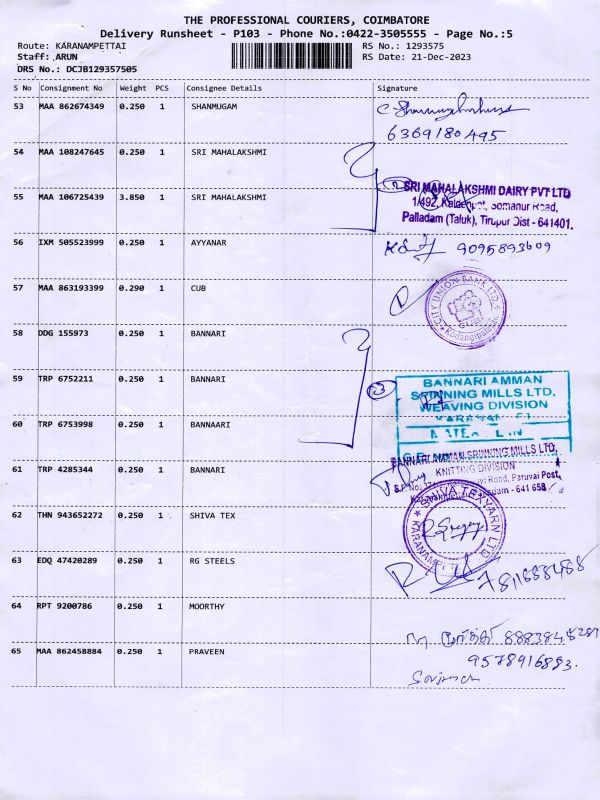 THE PROFESSIONAL COURIERS, COIMBATORE
Delivery Runsheet - P103 - Phone No.:0422-3505555 - Page No.:5
Route: KARANAMPETTAI RS No.: 1293575
Staff: ARUN RS Date: 21-Dec-2023
DRS No.: DCJB129357505
S No Consignment No Weight PCS Consignee Details Signature
53 MAA 862674349 0.250 1 SHANMUGAM
6369180495
54 MAA 108247645 0.250 1 SRI MAHALAKSHMI
55 MAA 106725439 3.850 1 SRI MAHALAKSHMI
SRI MAHALAKSHMI DAIRY PVT LTD
1/492, Somanur Road,
Palladam (Taluk), Tirupur Dist - 641401.
56 IXM 505523999 0.250 1 AYYANAR 9095893609
57 MAA 863193399 0.290 1 CUB
CITY UNION BANK LTD.
58 DDG 155973 0.250 1 BANNARI
59 TRP 6752211 0.250 1 BANNARI
BANNARI AMMAN
SPINNING MILLS LTD,
WEAVING DIVISION
60 TRP 6753998 0.250 1 BANNAARI
61 TRP 4285344 0.250 1 BANNARI
BANNARI AMMAN SPINNING MILLS LTD,
KNITTING DIVISION
Road, Paruvai Post,
62 THN 943652272 0.250 1 SHIVA TEX
SHIVA TEXYARN LTD
63 EDQ 47420289 0.250 1 RG STEELS
64 RPT 9200786 0.250 1 MOORTHY
65 MAA 862458884 0.250 1 PRAVEEN
9578916893.